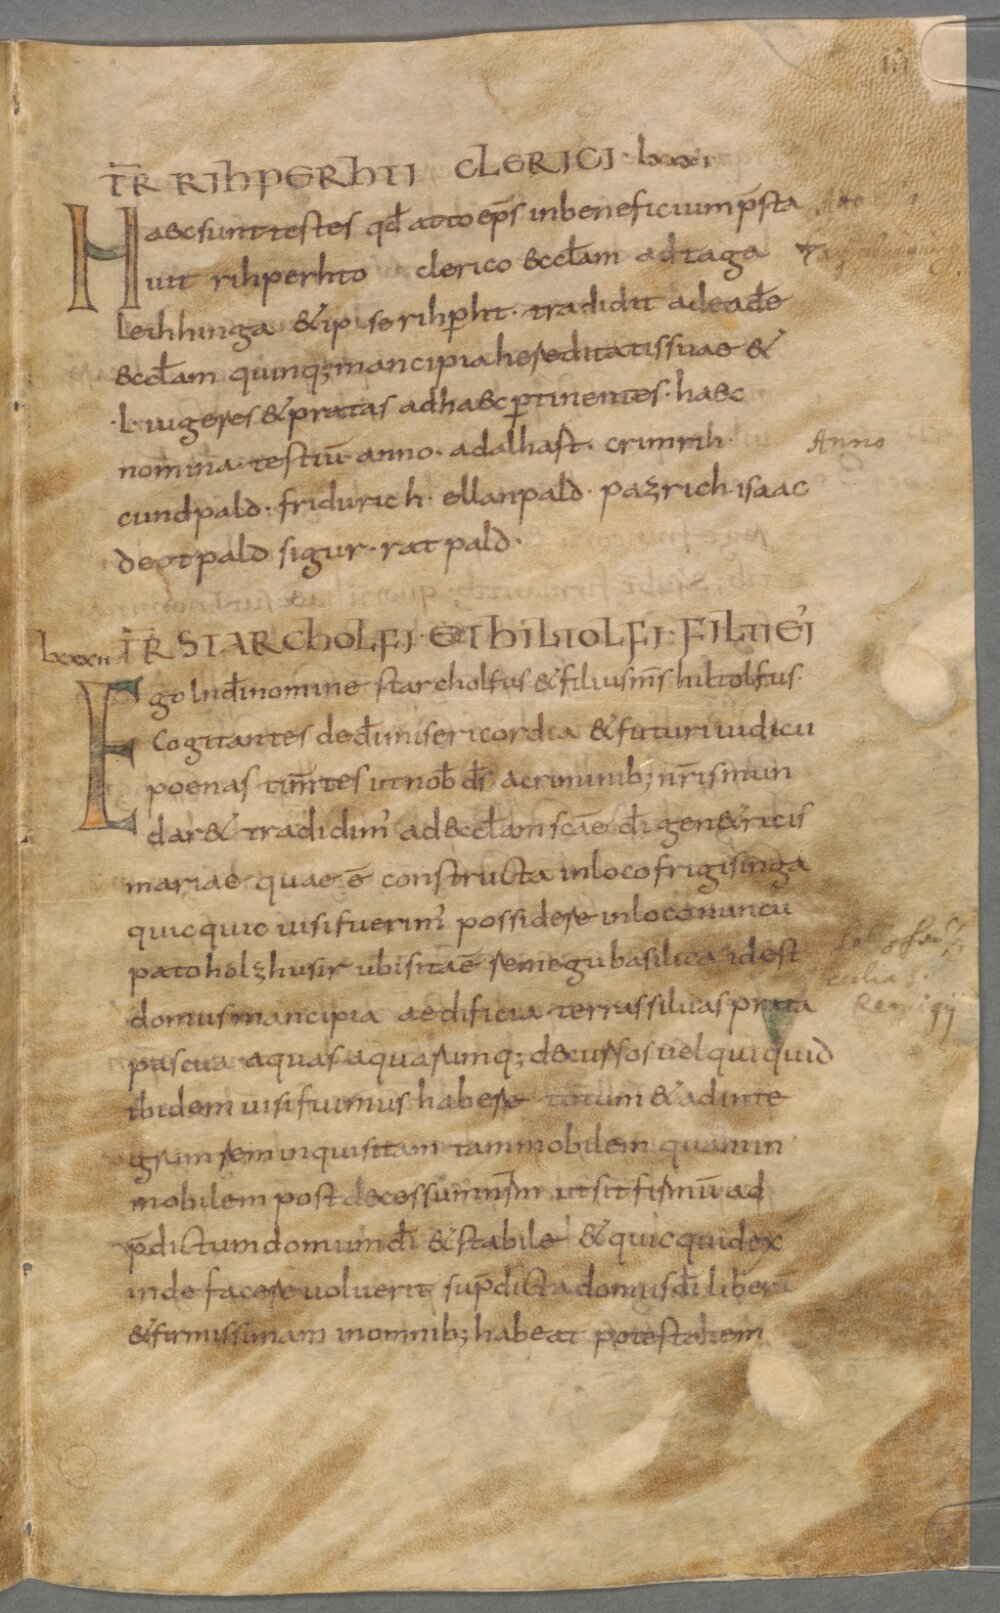 T̄R RIHPERHTI CLERICI· lxxxi
Haec sunt testes qd̄ atto ep̄s in beneficium p̄sta
uit rihperhto clerico &ccl̄am ad taga
leihhinga & ipse rihp̱ht· tradidit ad ead̄e
&ccl̄am quinq; mancipia hereditatis suae &
·l· iugeres & pratas ad haec ꝑtinentes· haec
nomina testiū· anno· adalhast· crimrih·
cundpald· fridurich· ellanpald· pazrich· isaac
deotpald sigur· ratpald·
Anno
lxxxii T̄R STARCHOLFI· ET HILTOLFI· FILII EI'
Ego In d̄i nomine starcholfus & filius m̄s hiltolfus·
Cogitantes de d̄i misericordia & futuri iudicii
poenas tim̄tes ut nob̄ d̄s a criminib; nr̄is mun
dar& tradidim' ad &ccl̄am sc̄ae d̄i genetricis
mariae quae ē constructa in loco frigisinga
quicquic uisi fuerim' possidere in loco nuncu
pato holzhusir ubi sita ē semegu basilica id est
domus mancipia aedificia terras siluas prata
pascua aquas aquarumq; decursos uel quiquid
ibidem uisi fuimus habere totum & ad inte
grum rem inquisitam tam mobilem quam in
mobilem post decessum nr̄m ut sit firmū ad
p̄dictum domum d̄i & stabile & quicquid ex
inde facere uoluerit sup̄dicta domus d̄i liberā
& firmissimam in omnib; habeat potestatem
Remigij